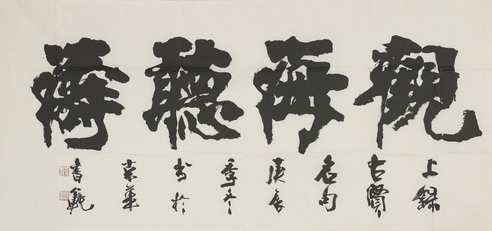 觀海聽濤
上錄
古賢
名句
庚
季冬
書於
京華
書